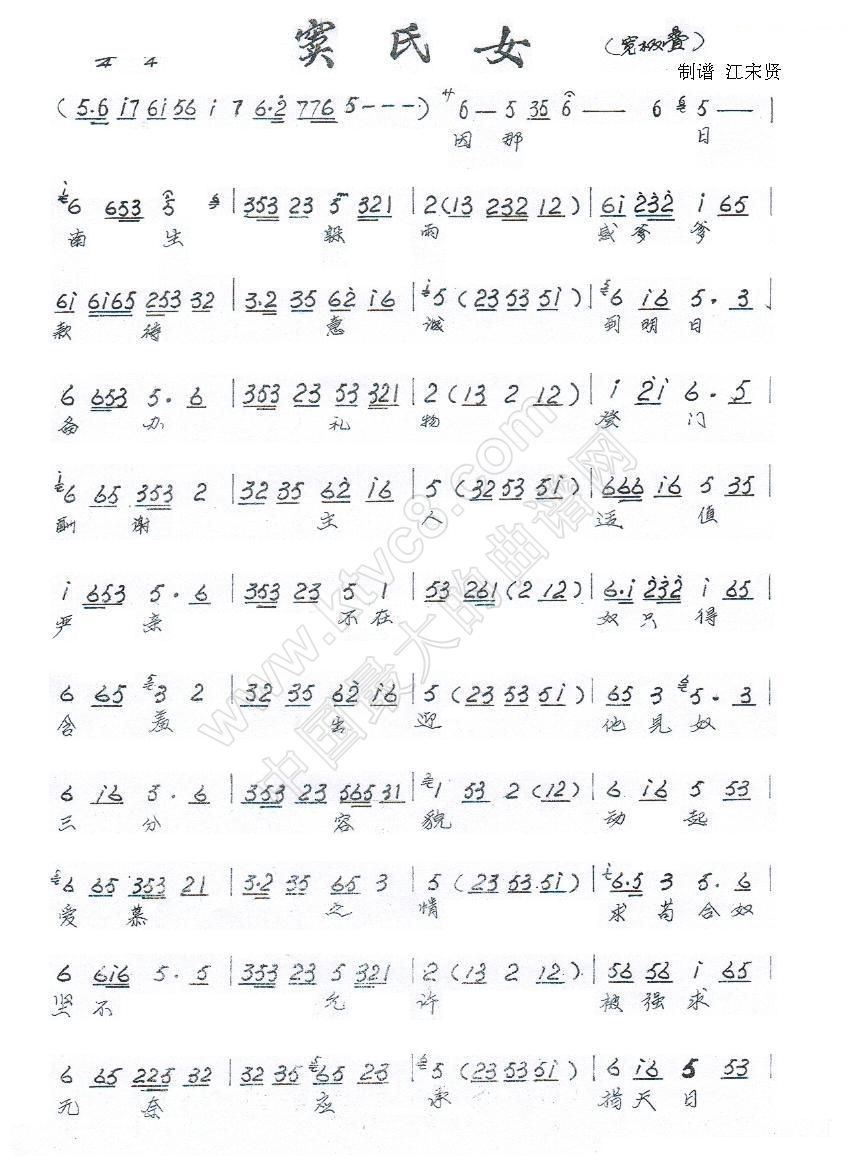 窦氏女 (宽板叠)
4 4
制谱 江宋贤
(5.6 i7 6i 56 i 7 6.2 776 5---) サ 6 — 5 35 6 —— 6 5 — |
因那 日
6 653 5 | 353 23 5 321 | 2(13 232 12) | 6i 232 i 65 |
南生 躲 雨 感爹爹
6i 6i65 253 32 | 3.2 35 62 i6 | 5(23 53 5i) | 6 i6 5. 3
款待 意 诚 到明日
6 653 5. 6 | 353 23 53 321 | 2(13 2 12) | i 2i 6. 5 |
备办 礼 物 登门
6 65 353 2 | 32 35 62 i6 | 5(32 53 5i) | 666 i6 5 35 |
酬谢 主 人 逞值
i 653 5. 6 | 353 23 5 1 | 53 261 (2 12) | 6.i 232 i 65 |
严亲 不在 奴只得
6 65 3 2 | 32 35 62 i6 | 5(23 53 5i) | 65 3 5. 3 |
含羞 出 迎 他见奴
6 i6 5. 6 | 353 23 565 31 | 1 53 2 (12) | 6 i6 5 53 |
三分 容 貌 动起
6 65 353 21 | 3.2 35 65 3 | 5(23 53 5i) | 6.5 3 5. 6 |
爱慕 之 情 求苟合奴
6 6i6 5. 5 | 353 23 5 321 | 2(13 2 12) | 56 56 i 65 |
坚不 允 许 被强求
6 65 225 32 | 32 35 65 23 | 5(23 53 5i) | 6 i6 5 53 |
无奈 应 承 指天日
www.ktvc8.com
中国最大的曲谱网